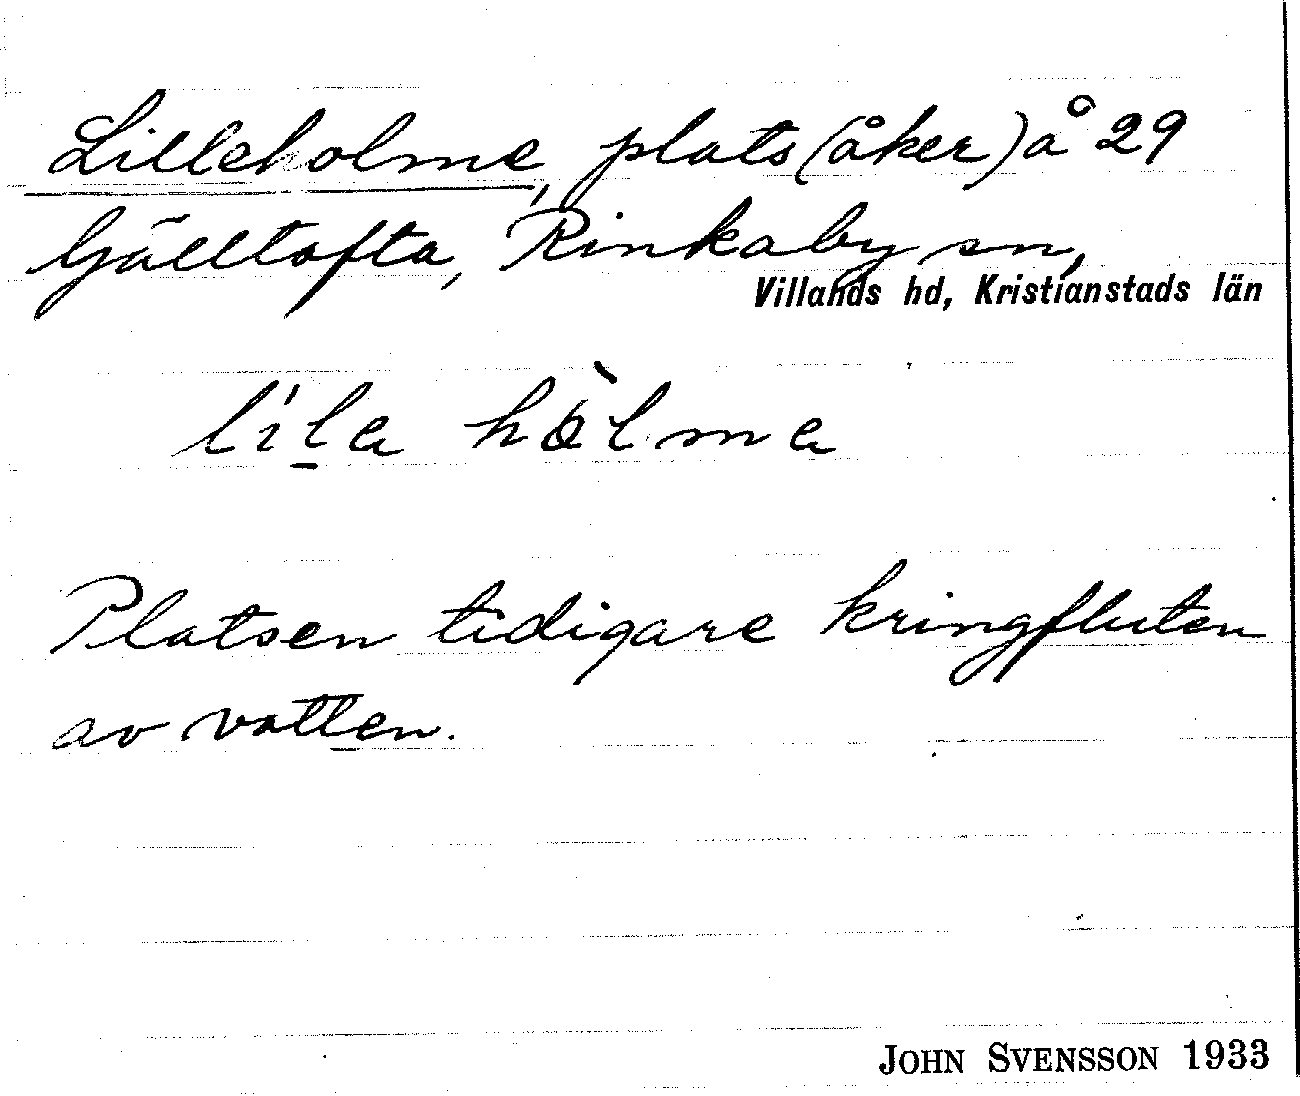 Lilleholme, plats (åker) å 29
Gälltofta, Rinkaby sn,
Villands hd, Kristianstads län
li'la hòlma
Platsen tidigare kringfluten
av vatten.
JOHN SVENSSON 1933